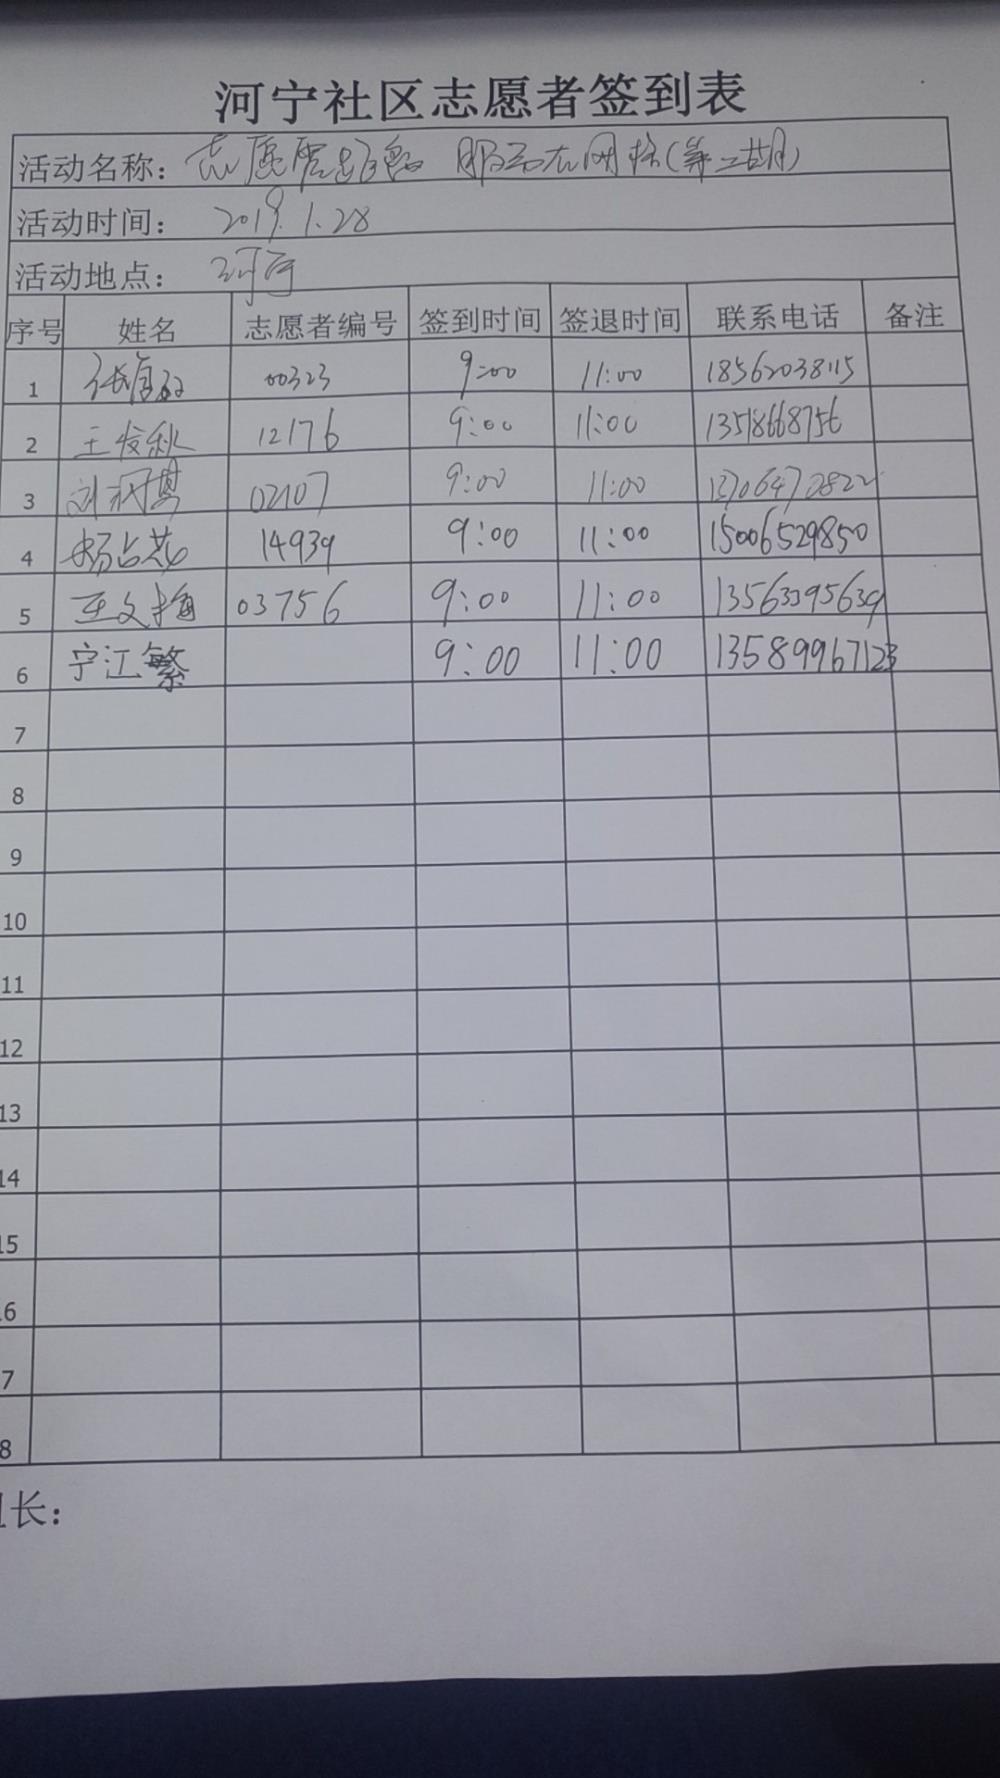 河宁社区志愿者签到表
活动名称：志愿 服务在网格(第二期)
活动时间： 2019.1.28
活动地点：
序号 姓名 志愿者编号 签到时间 签退时间 联系电话 备注
1 00323 9:00 11:00 18562038115
2 王发秋 12176 9:00 11:00 13518668756
3 刘 02107 9:00 11:00 13706472822
4 杨占花 14939 9:00 11:00 15006529850
5 王文梅 03756 9:00 11:00 13563395639
6 宁江繁 9:00 11:00 13589967123
7
8
9
10
11
12
13
14
15
6
7
8
长：